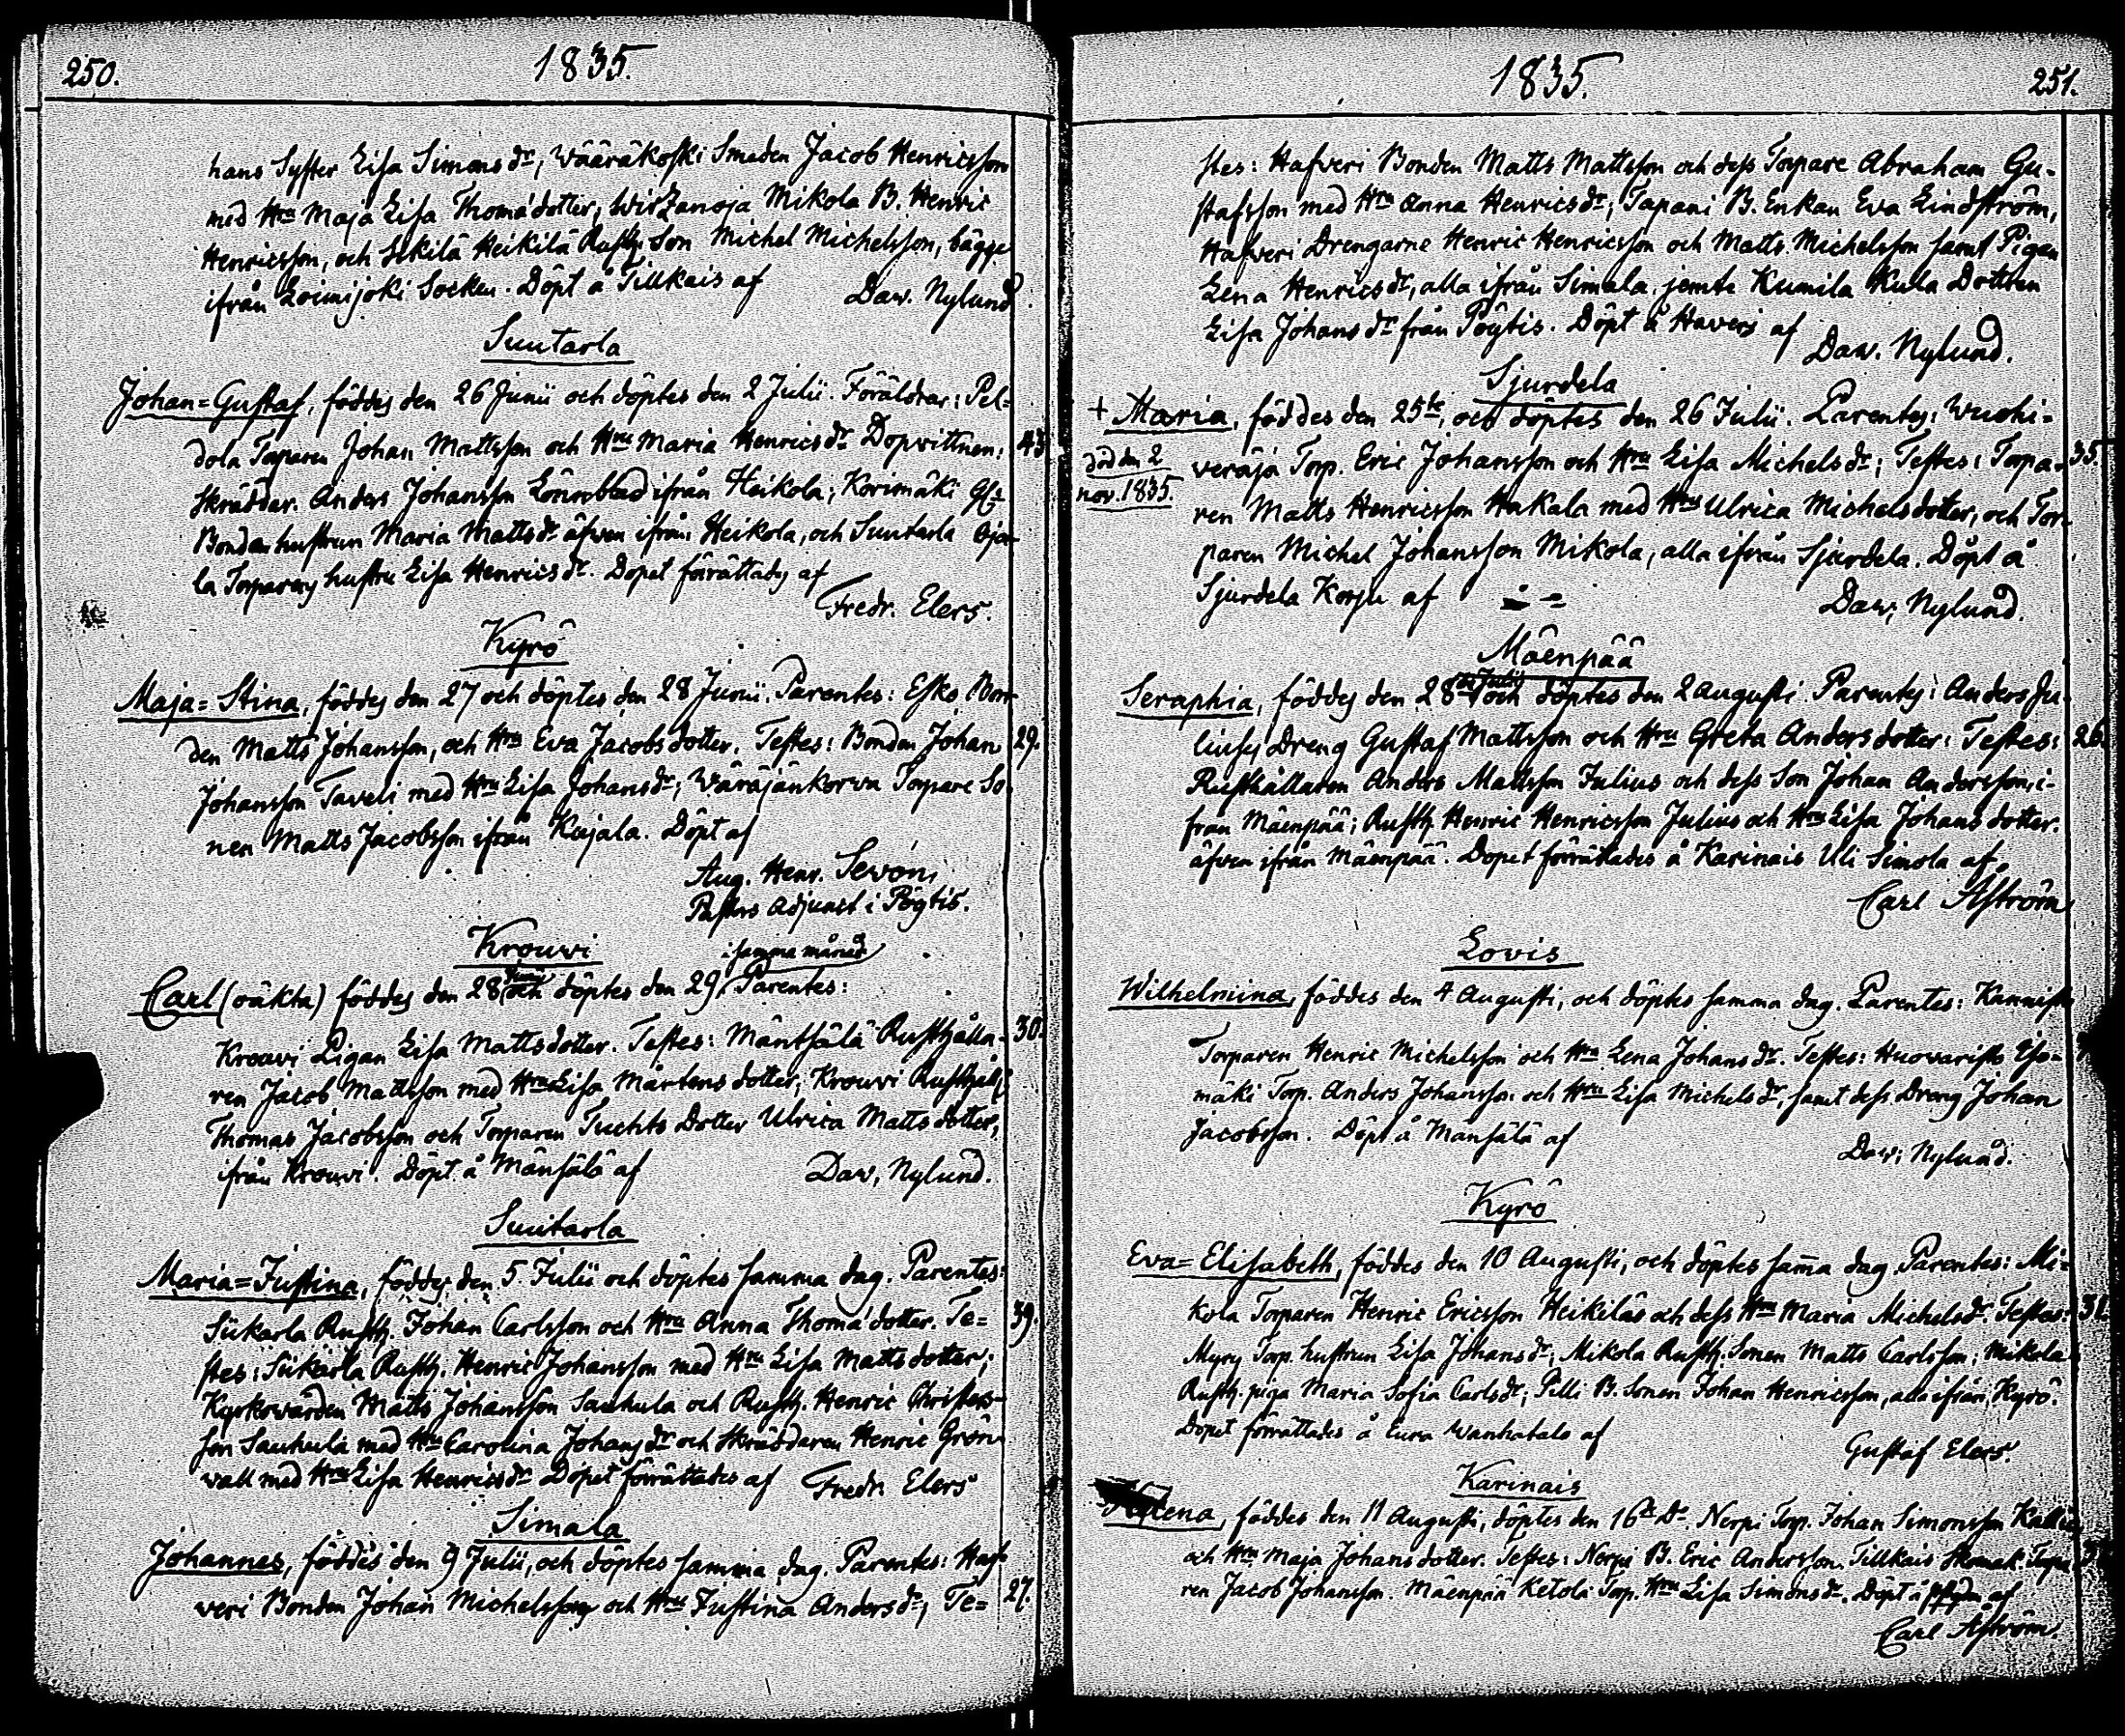 250.
1835.
hans Syster Lisa Simons dr, Wääräkoski Smeden Jacob Henricsson
med Hru Maja Lisa Thomä dotter, Wirzanoja Mikola B. Henric
Henricsson, och Sekilä Heikilä Rusth. Son Michel Michelsson, bägge
ifrån Loimijoki Socken. Döpt å Tillkais af
Daw. Nylund.
Suutarla
Johan=Gustaf, föddes den 26 Junii och döptes den 2 Julii. Föräldrar: Pel=
dola Torparen Johan Mattsson och Hru Maria Henricsdr Dopvittnen: 43
Skräddar. Anders Johansson Lönnblad ifrån Heikola; Korimäki
Bondan hustrun Maria Mattsdr äfven ifrån Heikola, och Suutarla Oja-
la Torparens hustru Lisa Henricsdr. Dopet förrättades af
Fredr. Elers.
Kyrö
Maja=Stina, föddes den 27 och döptes den 28 Junii. Parentes: Esko Bon-
den Matts Johansson, och Hru Eva Jacobsdotter. Testes: Bonden Johan 29.
Johansson Taveli med Hru Lisa Johansdr; Wäräjänkorva Torpare So-
nen Matts Jacobsson ifrån Kujala. Döpt af
Aug. Henr. Sevón,
Pastors Adjunct i Pöytis.
Krouvi
samma månad
Carl (oäkta) föddes den 28 Junii och döptes den 29. Parentes:
Krouvi Pigan Lisa Mattsdotter. Testes: Mäntsälä Rusthålla- 30.
ren Jacob Mattsson med Hru Lisa Mårtens dotter; Krouvi Rusthåll.
Thomas Jacobsson och Torparen Tuchts Dotter Ulrica Matts dotter,
ifrån Krouvi. Döpt å Mänsälä af
Daw. Nylund.
Suutarla
Maria=Justina, föddes den 5. Julii och döptes samma dag. Parentes:
Sukarla Rusth. Johan Carlsson och Hru Anna Thomä dotter. Te= 39.
stes: Sukarla Rusth. Henric Johansson med Hru Lisa Matts dotter;
Kyrkovärden Matts Johansson Sauhula och Rusth. Henric Christers-
son Sauhula med Hru Carolina Johansdr och Skräddaren Henric Grön-
vall med Hru Lisa Henricsdr Dopet förrättades af Fredr. Elers
Simala
Johannes, föddes den 9 Julii, och döptes samma dag. Parentes: Haf-
veri Bonden Johan Michelsson och Hru Justina Andersdr; Te= 27.
1835.
251.
stes: Hafveri Bonden Matts Mattsson och dess Torpare Abraham Gu-
stafsson med Hru Anna Henricsdr; Tapani B. Enkan Eva Lindström,
Hafveri Drengarne Henric Henricsson och Matts Michelsson samt Pigan
Lena Henricsdr, alla ifrån Simala. jemte Kumila Kula Dottren
Lisa Johansdr från Pöytis. Döpt å Haveri af
Daw. Nylund.
Sjurdela
+ Maria, föddes den 25te, och döptes den 26 Julii. Parentes: Wuohi-
död den 2
nov. 1835.
veräjä Torp. Eric Johansson och Hru Lisa Michelsdr; Testes: Torpa- 35.
ren Matts Henricsson Hakala med Hru Ulrica Michelsdotter, och Tor-
paren Michel Johansson Mikola, alla ifrån Sjurdela. Döpt å
Sjurdela Korpu af
Daw. Nylund.
Mäenpää
Seraphia, föddes den 28 Julii och döptes den 2 Augusti. Parentes: Anders Ju-
liuses Dreng Gustaf Mattsson och Hru Greta Anders dotter: Testes: 26.
Rusthållaren Anders Mattsson Julius och dess Son Johan Andersson, i-
från Mäenpää; Rusth. Henric Henricsson Julius och Hru Lisa Johans dotter.
äfven ifrån Mäenpää. Dopet förrättades å Karinais Uli Simola af
Carl Åström
Lovis
Wilhelmina, föddes den 4 Augusti, och döptes samma dag. Parentes: Kannisto
Torparen Henric Michelsson och Hru Lena Johansdr. Testes: Huovaristo Iso-
mäki Torp. Anders Johansson och Hru Lisa Michelsdr, samt dess Dreng Johan
Jacobsson. Döpt å Mänsälä af
Daw. Nylund.
Kyrö
Eva=Elisabeth, föddes den 10 Augusti, och döptes sam̄a dag. Parentes: Mi-
kola Torparen Henric Ericsson Heikiläs och dess Hru Maria Michelsdr. Testes: 31.
Myry Torp. hustrun Lisa Johansdr; Mikola Rusth. Sonen Matts Carlsson; Mikola
Rusth. piga Maria Sofia Carlsdr; Pilli B. Sonen Johan Henricsson, alla ifrån Kyrö.
Dopet förrättades å Eura Wanhatalo af
Gustaf Elers.
Karinais
Helena, föddes den 11 Augusti, döptes den 16de Dr. Nerpi Torp. Johan Simonsson Kallio
och Hru Maja Johansdotter. Testes: Nerpi B. Eric Andersson. Tillkais
ren Jacob Johansson. Mäenpää Ketola Torp. Hru Lisa Simonsdr. Döpt å af
Carl Åström.